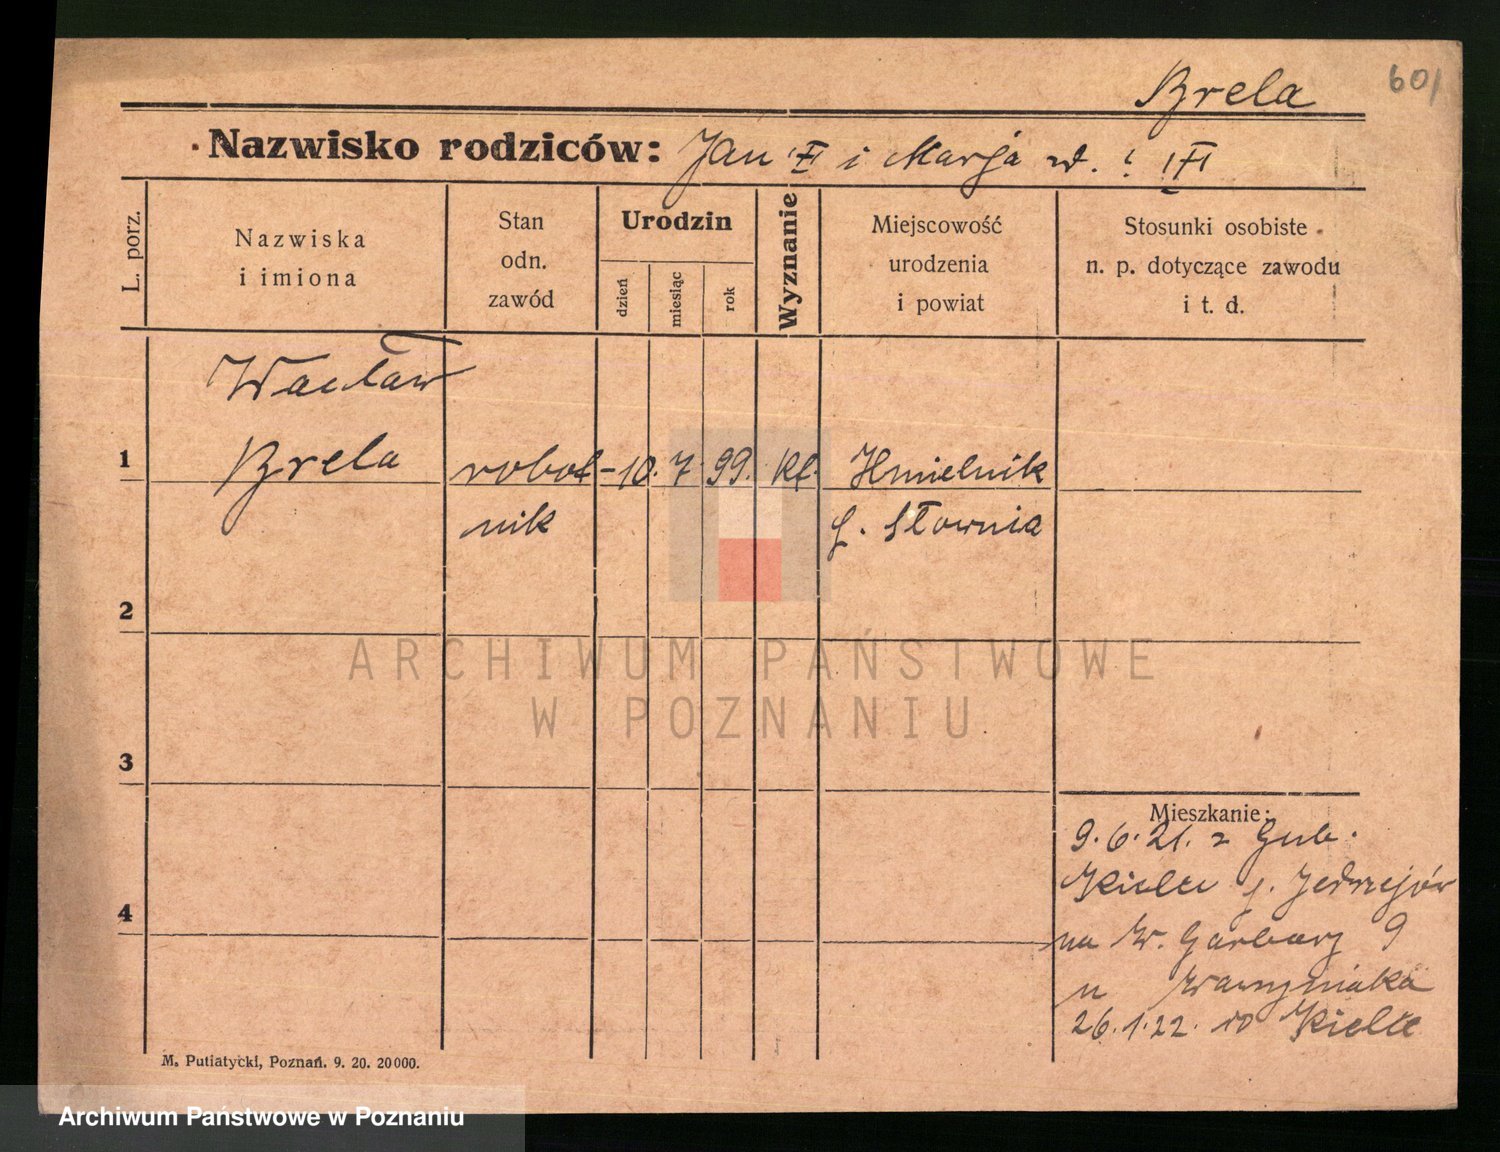 Brela
601
Nazwisko rodziców: Jan i Marja
L. porz.
Nazwiska
i imiona
Stan
odn.
zawód
Urodzin
dzień
miesiąc
rok
Wyznanie
Miejscowość
urodzenia
i powiat
Stosunki osobiste
n. p. dotyczące zawodu
i t. d.
Wacław
1 Brela robot- 10. 7. 99. kt. Hmielnik
nik p. Słownia
2
ARCHIWUM PAŃSTWOWE
W POZNANIU
3
Mieszkanie:
9.6.21. z Gub.
Kielce p. Jedrzejów
4
na W. Garbary 9
u Wawrzyniaka
26.1.22. do Kielce
M. Putiatycki, Poznań. 9. 20. 20000.
Archiwum Państwowe w Poznaniu